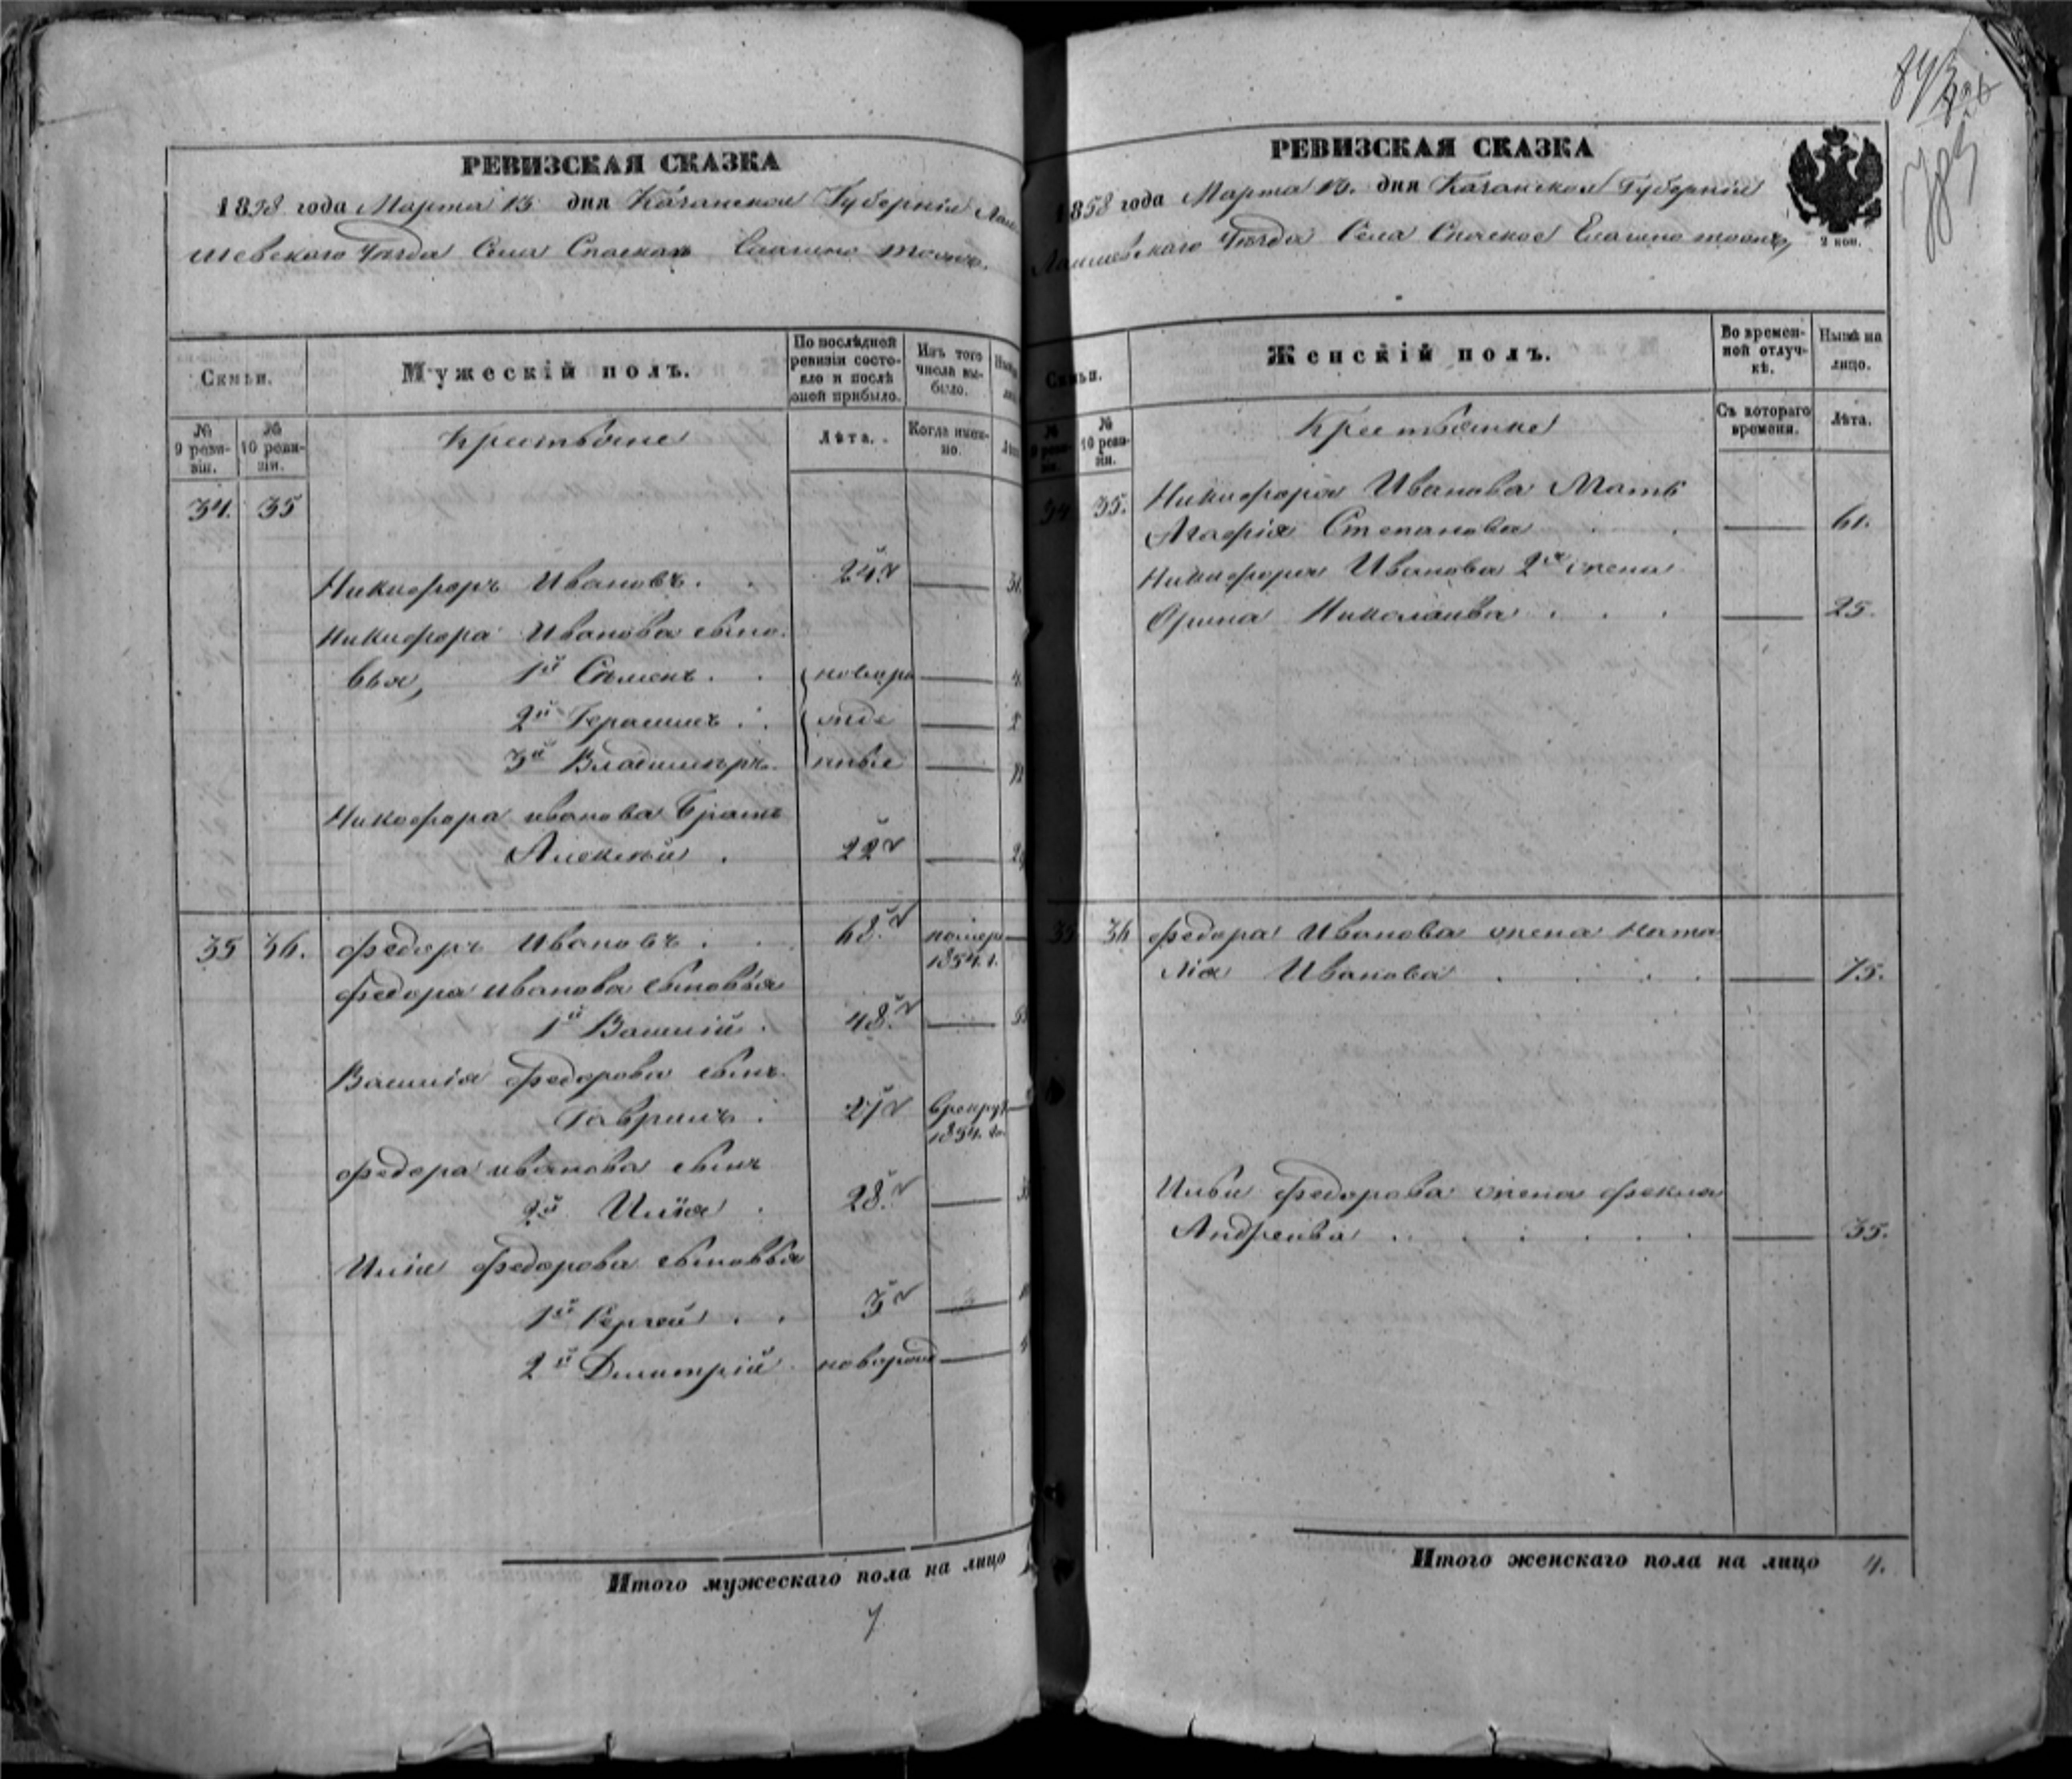 РЕВИЗСКАЯ СКАЗКА
1858 года Марта 13 дня Казанской Губерніи Лаи
шевскаго Уѣзда Села Спаское
Семьи.
Мужескій полъ.
По послѣдней ревизіи состояло и послѣ оной прибыло.
Изъ того числа выбыло.
№ 9 ревизіи.
№ 10 ревизіи.
Крестьяне
Лѣта.
Когда именно.
34. 35
Никифоръ Ивановъ. 24.
Никифора Иванова сыно
вья, 1й Семенъ. новоро
2й Герасимъ. жде
3й Владимиръ. нные
Никифора иванова Братъ
Алексѣй. 22
35 36. Федоръ Ивановъ. 68. помер
1854. г.
Федора иванова сыновья
1й Василій. 48.
Василія Федорова сынъ
Гаврилъ. 27 врекрут
1854. го.
Федора иванова сынъ
2й Илія. 28.
Иліи Федорова сыновья
1й Сергей. 3
2й Дмитрій новорожд
Итого мужескаго пола на лицо
7
РЕВИЗСКАЯ СКАЗКА
1858 года Марта 13. дня Казанской Губерніи
Лаишевскаго Уѣзда Села Спаское
2 коп.
Семьи.
Женскій полъ.
Во временной отлучкѣ.
Нынѣ на лицо.
№ 9 ревизіи.
№ 10 ревизіи.
Крестьянке
Съ котораго времени.
Лѣта.
34 35. Никифора Иванова Мать
Агафія Степанова 61.
Никифора Иванова 2я жена
Орина Николаива 25.
35 36 Федора Иванова жена Ната
лія Иванова 75.
Ильи Федорова жена Фекла
Андреива 35.
Итого женскаго пола на лицо 4.